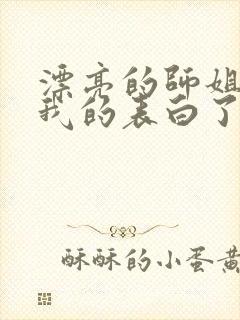 漂亮的师姐
我的表白了
酥酥的小蛋黄